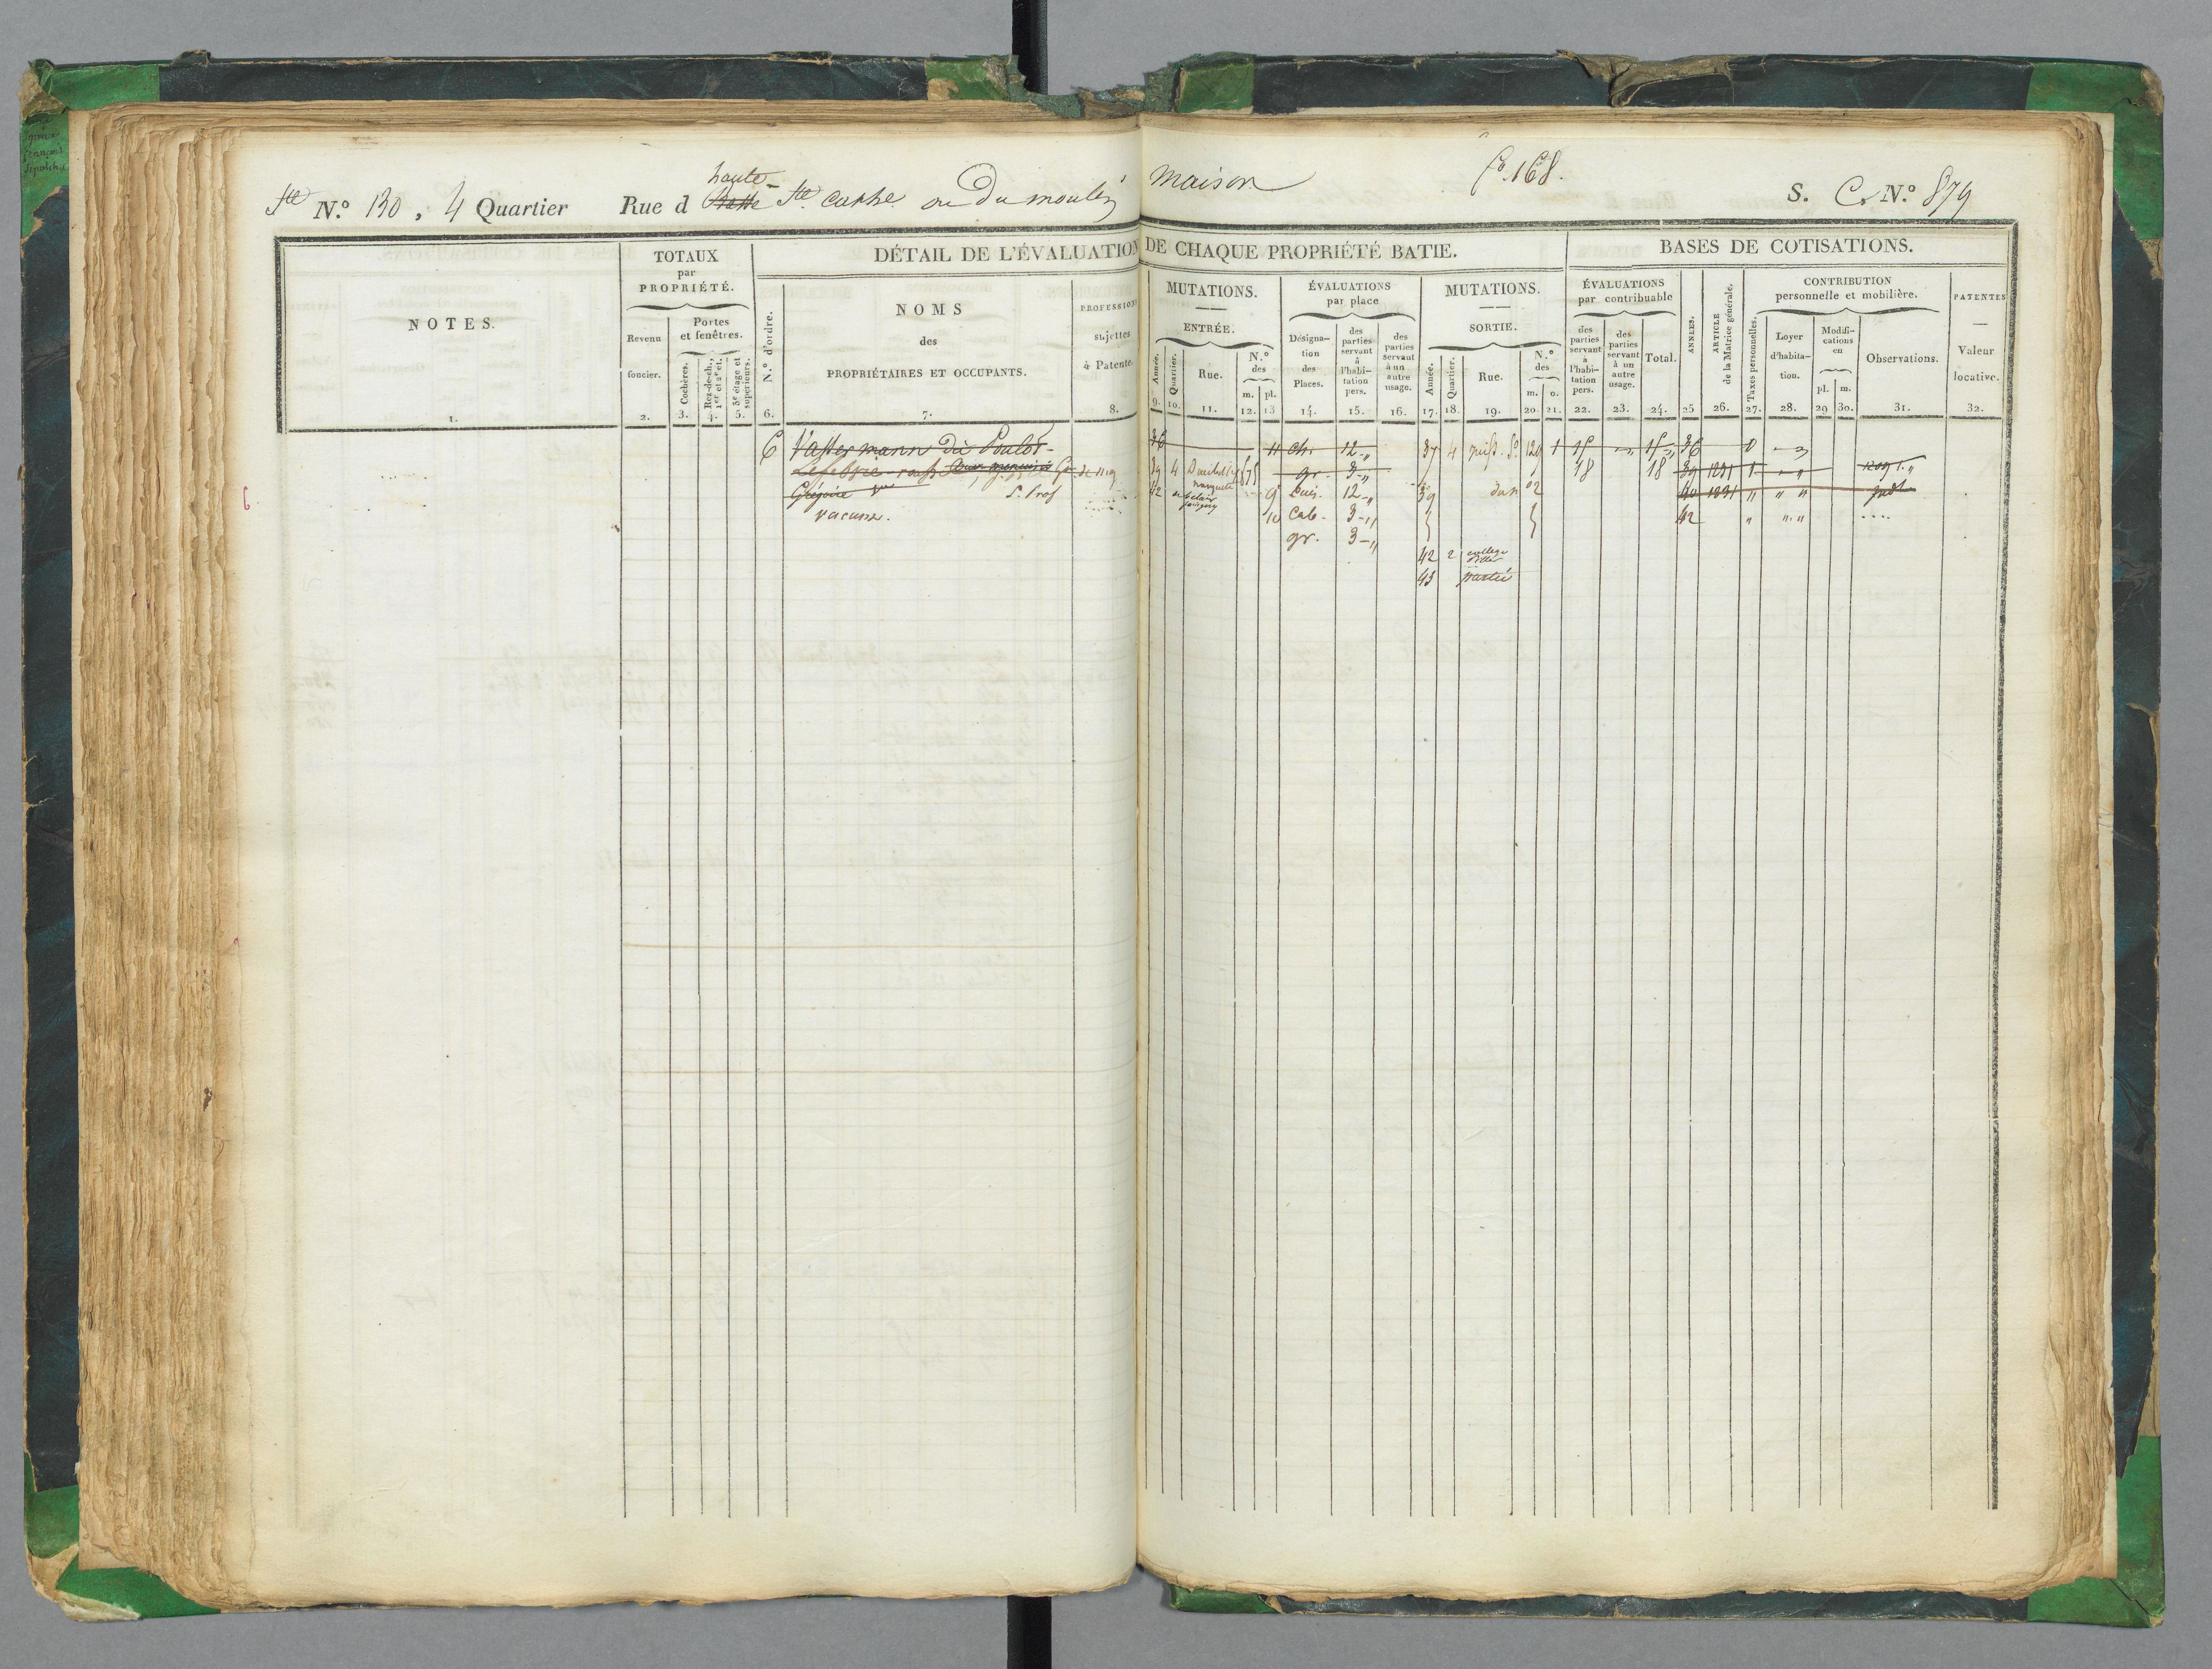 Ste N.º 130, 4 Quartier Rue d haute Ste cathe ou Du moulin maison fº. 168. S. C. N.º 879
DÉTAIL DE L'ÉVALUATION DE CHAQUE PROPRIÉTÉ BATIE.
BASES DE COTISATIONS.
NOTES.
1.
TOTAUX
par
PROPRIÉTÉ.
Revenu
foncier.
2.
Portes
et fenêtres.
Cochères.
3.
Rez-de-ch.,
1er et 2e ét.
4.
3e étage et
supérieurs.
5.
N.º d'ordre.
6.
NOMS
des
PROPRIÉTAIRES ET OCCUPANTS.
7.
PROFESSIONS
sujettes
à Patente.
8.
MUTATIONS.
ENTRÉE.
Année.
9.
Quartier.
10.
Rue.
11.
N.º
des
m. pl.
12. 13
ÉVALUATIONS
par place
Désigna-
tion
des
Places.
14.
des
parties
servant
à
l'habi-
tation
pers.
15.
des
parties
servant
à un
autre
usage.
16.
MUTATIONS.
SORTIE.
Année.
17.
Quartier.
18.
Rue.
19.
N.º
des
m. o.
20. 21.
ÉVALUATIONS
par contribuable
des
parties
servant
à
l'habi-
tation
pers.
22.
des
parties
servant
à un
autre
usage.
23.
Total.
24.
ANNÉES.
25
ARTICLE
de la Matrice générale.
26.
CONTRIBUTION
personnelle et mobilière.
Taxes personnelles.
27.
Loyer
d'habita-
tion.
28.
Modifi-
cations
en
pl. m.
29 30.
Observations.
31.
PATENTES
Valeur
locative.
32.
6 Vassermann 36 11 ch. 12 - „ 37 4 129 1 15 15 36 0
Lefebvre 39 4 gr. 3 - „ 18 18 39 1231 1 - „
Grégoire 42 9 Cuis. 12 - „ 39 40 1231 „ „ „
vacant. 10 Cab. 3 - „ 42 „ „ „
gr. 3 - „
42 2 college
43 partie